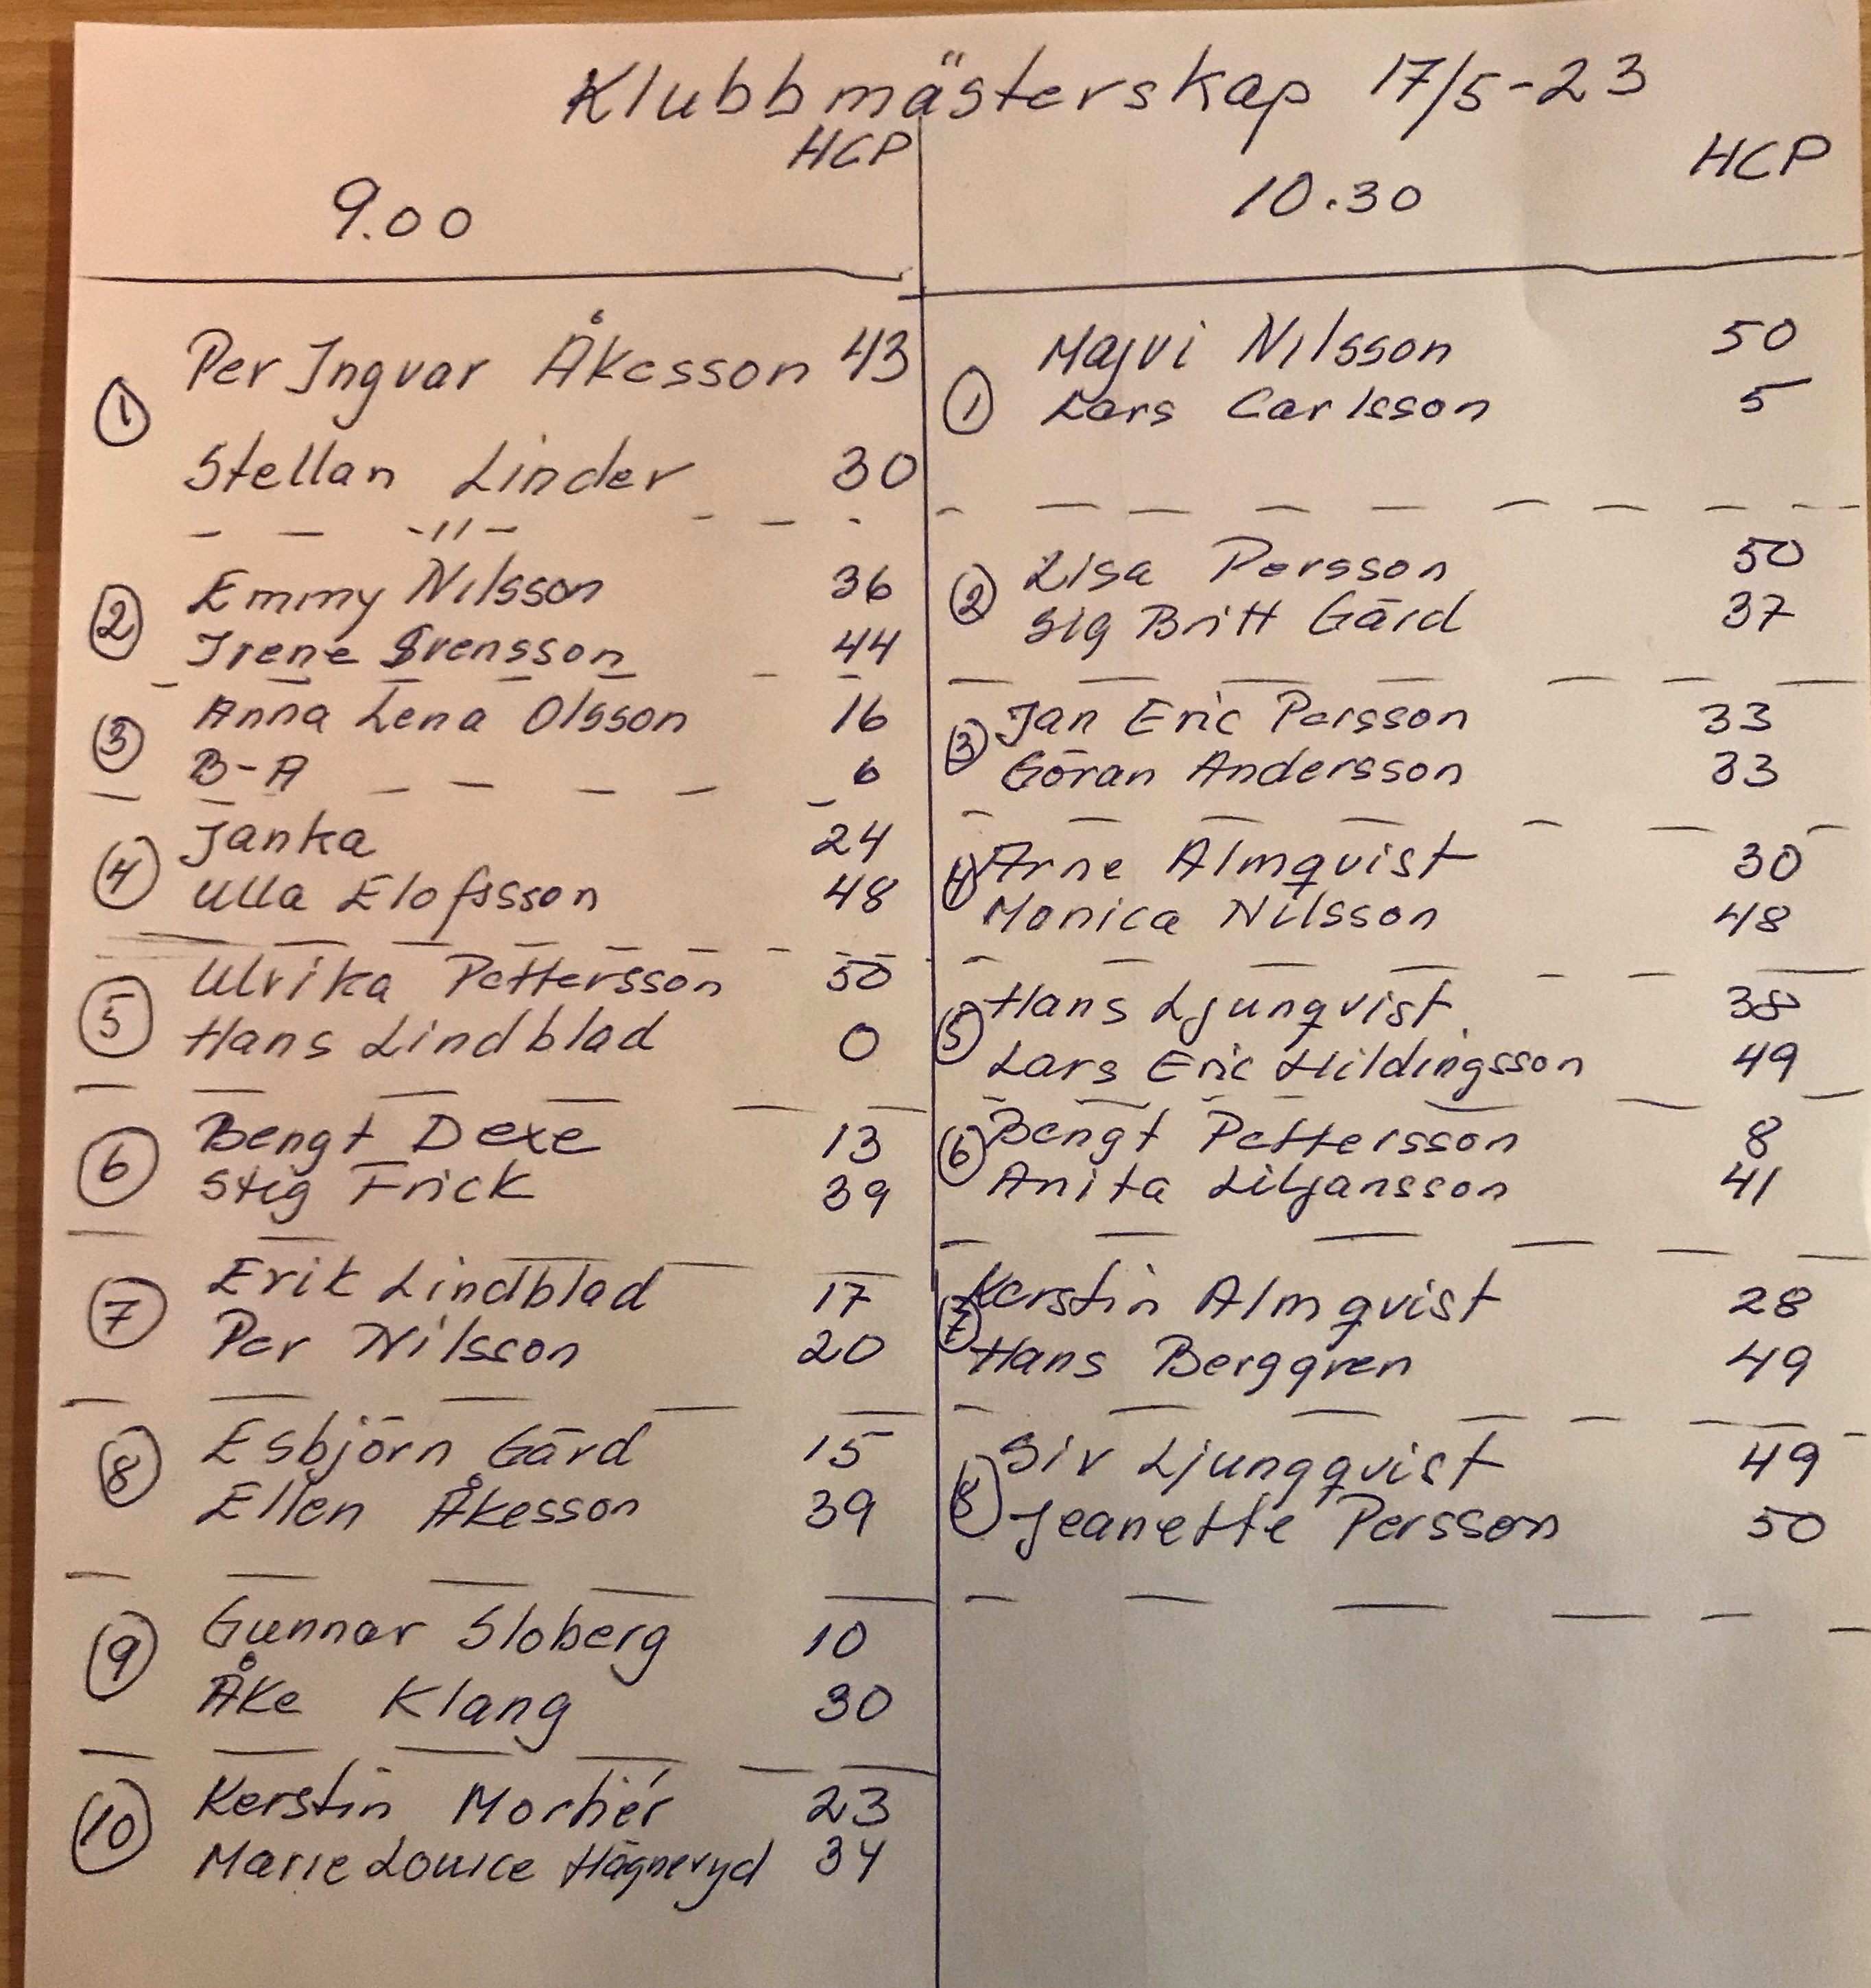 Klubbmästerskap 17/5-23
HCP
9.00
① Per Ingvar Åkesson 43
Stellan Linder 30
-11-
② Emmy Nilsson 36
Irene Svensson 44
③ Anna Lena Olsson 16
B-A 6
④ Janka 24
Ulla Elofsson 48
⑤ Ulrika Pettersson 50
Hans Lindblad 0
⑥ Bengt Dexe 13
Stig Frick 39
⑦ Erik Lindblad 17
Per Nilsson 20
⑧ Esbjörn Gärd 15
Ellen Åkesson 39
⑨ Gunnar Sloberg 10
Åke Klang 30
⑩ Kerstin 23
Marie Louice Hägneryd 34
HCP
10.30
① Majvi Nilsson 50
Lars Carlsson 5
② Lisa Persson 50
Sig Britt Gärd 37
③ Jan Eric Persson 33
Göran Andersson 33
④ Arne Almqvist 30
Monica Nilsson 48
⑤ Hans Ljunqvist 38
Lars Eric Hildingsson 49
⑥ Bengt Pettersson 8
Anita Liljansson 41
⑦ Kerstin Almqvist 28
Hans Berggren 49
⑧ Siv Ljungqvist 49
Jeanette Persson 50